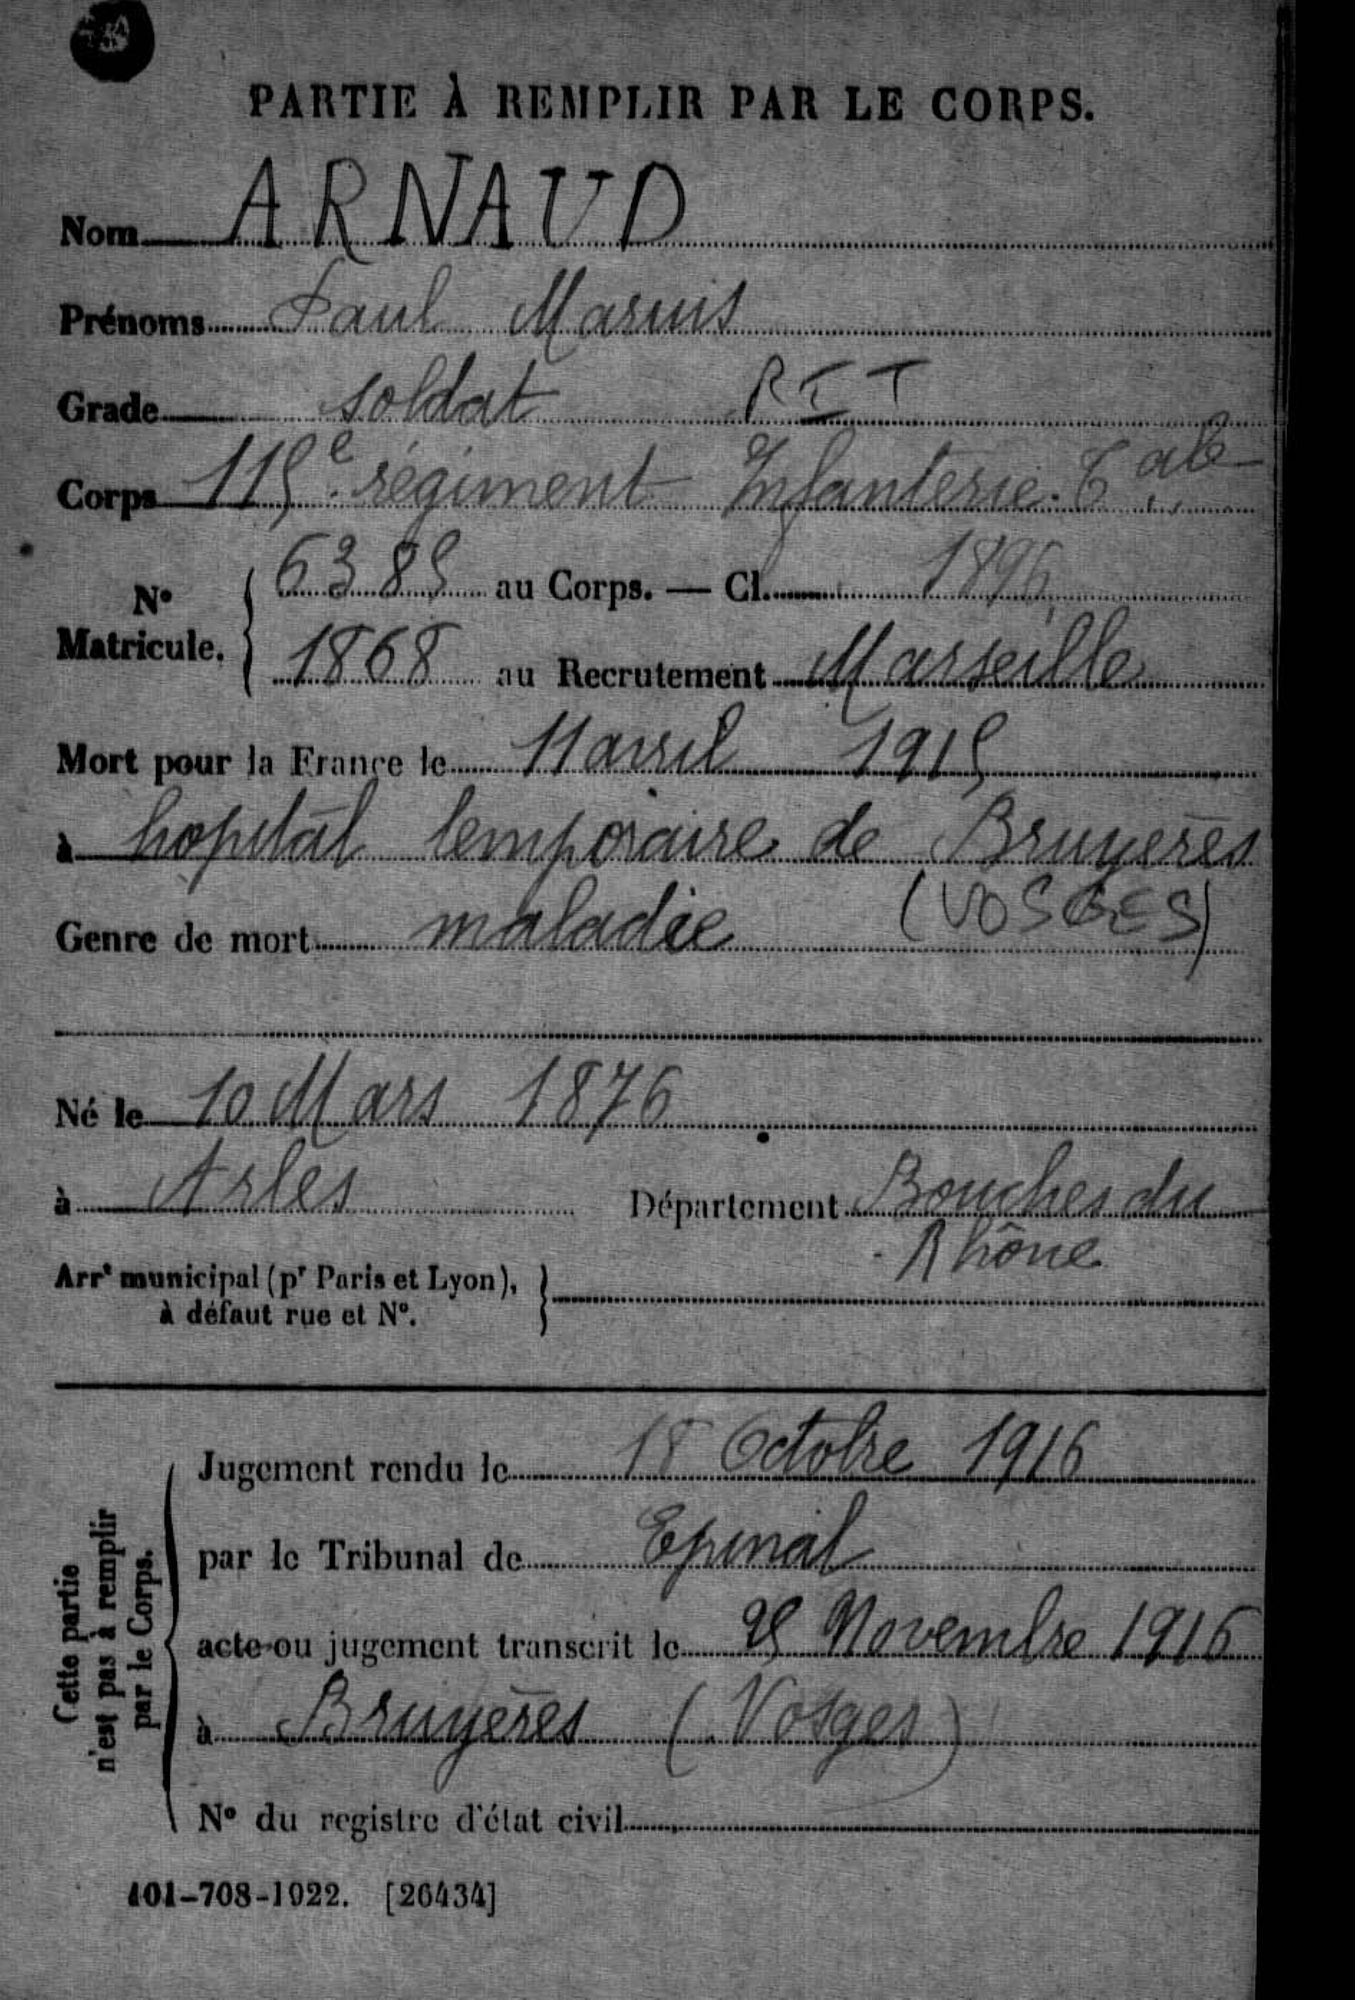 PARTIE À REMPLIR PAR LE CORPS.
Nom ARNAUD
Prénoms Paul Marius
Grade soldat RIT
Corps 115e régiment Infanterie Tale
N° Matricule. 6385 au Corps. — Cl. 1896
1868 au Recrutement Marseille
Mort pour la France le 11 avril 1915
à hopital temporaire de Bruyères
(VOSGES)
Genre de mort maladie
Né le 10 Mars 1876
à Arles Département Bouches du
Rhône
Arrt municipal (pr Paris et Lyon),
à défaut rue et N°.
Cette partie
n'est pas à remplir
par le Corps.
Jugement rendu le 18 Octobre 1916
par le Tribunal de Epinal
acte ou jugement transcrit le 25 Novembre 1916
à Bruyères (Vosges)
N° du registre d'état civil
101-708-1922. [26434]